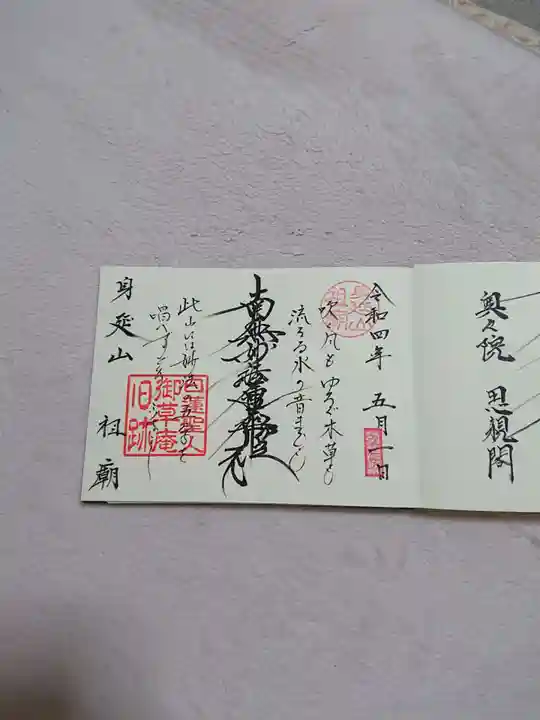 奥之院 思親閣
令和四年 五月一日
吹く風も ゆるぐ木草も
流るる水の音までも
南無妙法蓮華経
此山には妙法の五字を
唱へずと云ふことなし
日蓮聖人
御草庵
旧跡
身延山 祖廟